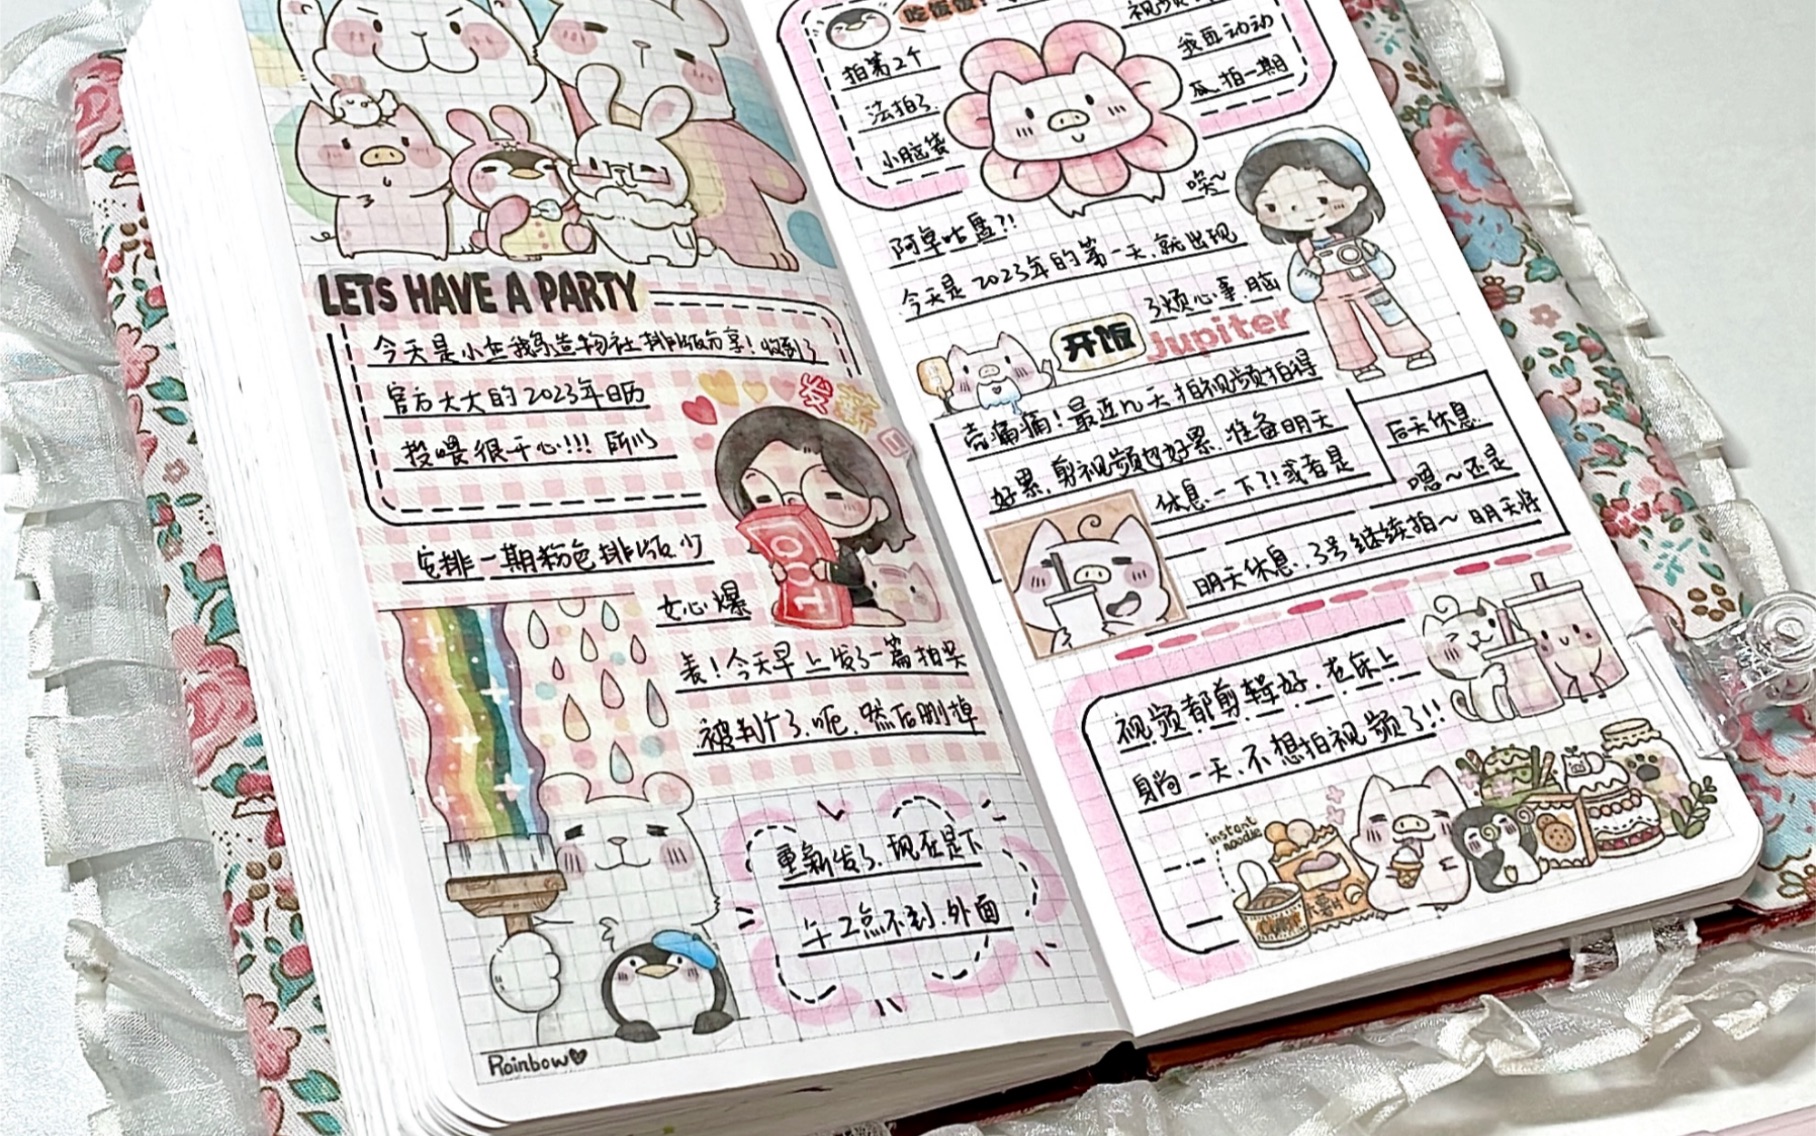 LETS HAVE A PARTY
今天是小在我系造物社排版分享!收到了
官方大大的2023年日历
投喂很开心!!!所以
发薪
安排一期粉色排版少
女心爆
表!今天早上发了一篇拍哭
被判个了.呃.然后删掉
重新发了.现在是下
午2点不到.外面
Rainbow
吃饭饭
拍第2个
法拍了
小脑袋
视频
我且动动
瓜.拍一期
唉~
阿卓咕盘?!
今天是2023年的第一天.就出现
了烦心事.脑
开饭
jupiter
壳痛痛!最近几天拍视频拍得
好累.剪视频也好累.准备明天
休息一下?!或者是
后天休息.
嗯~还是
明天休息..3号继续拍~明天将
视频都剪辑好.在床上
身尚一天.不想拍视频了!!
instant
noodle